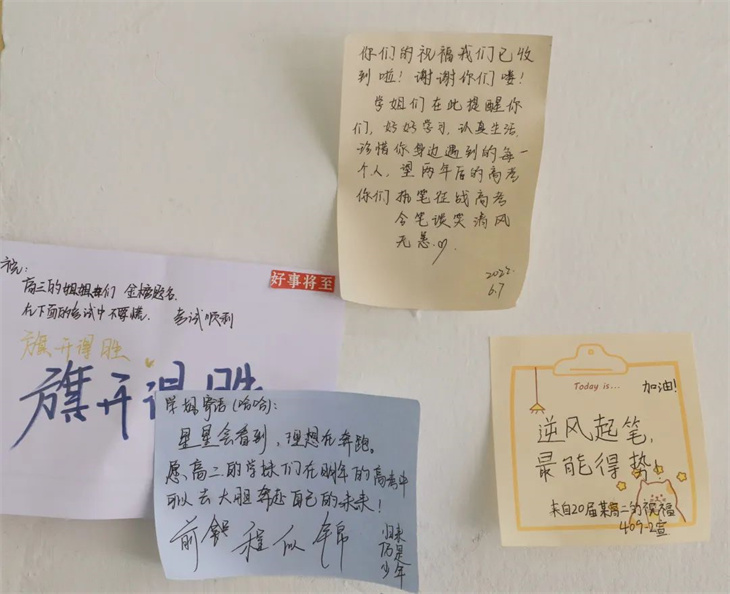 你们的祝福我们已收
到啦！谢谢你们喽！
学姐们在此提醒你
们，好好学习，认真生活，
珍惜你身边遇到的每一
个人，望两年后的高考
你们执笔征战高考
合笔谈笑清风
无恙.♡.
2022.
6.7
祝：
高三的姐姐们 金榜题名.
在下面的考试中不要慌. 考试顺利
好事将至
旗开得胜
旗开得胜
学姐寄语(哈哈)：
星星会看到，理想在奔跑。
愿高二的学妹们在明年的高考中
可以去大胆奔赴自己的未来！
前程似锦
归来
仍是
少年
Today is...
加油！
逆风起笔，
最能得势！
来自20届某高二的祝福
409-2宣